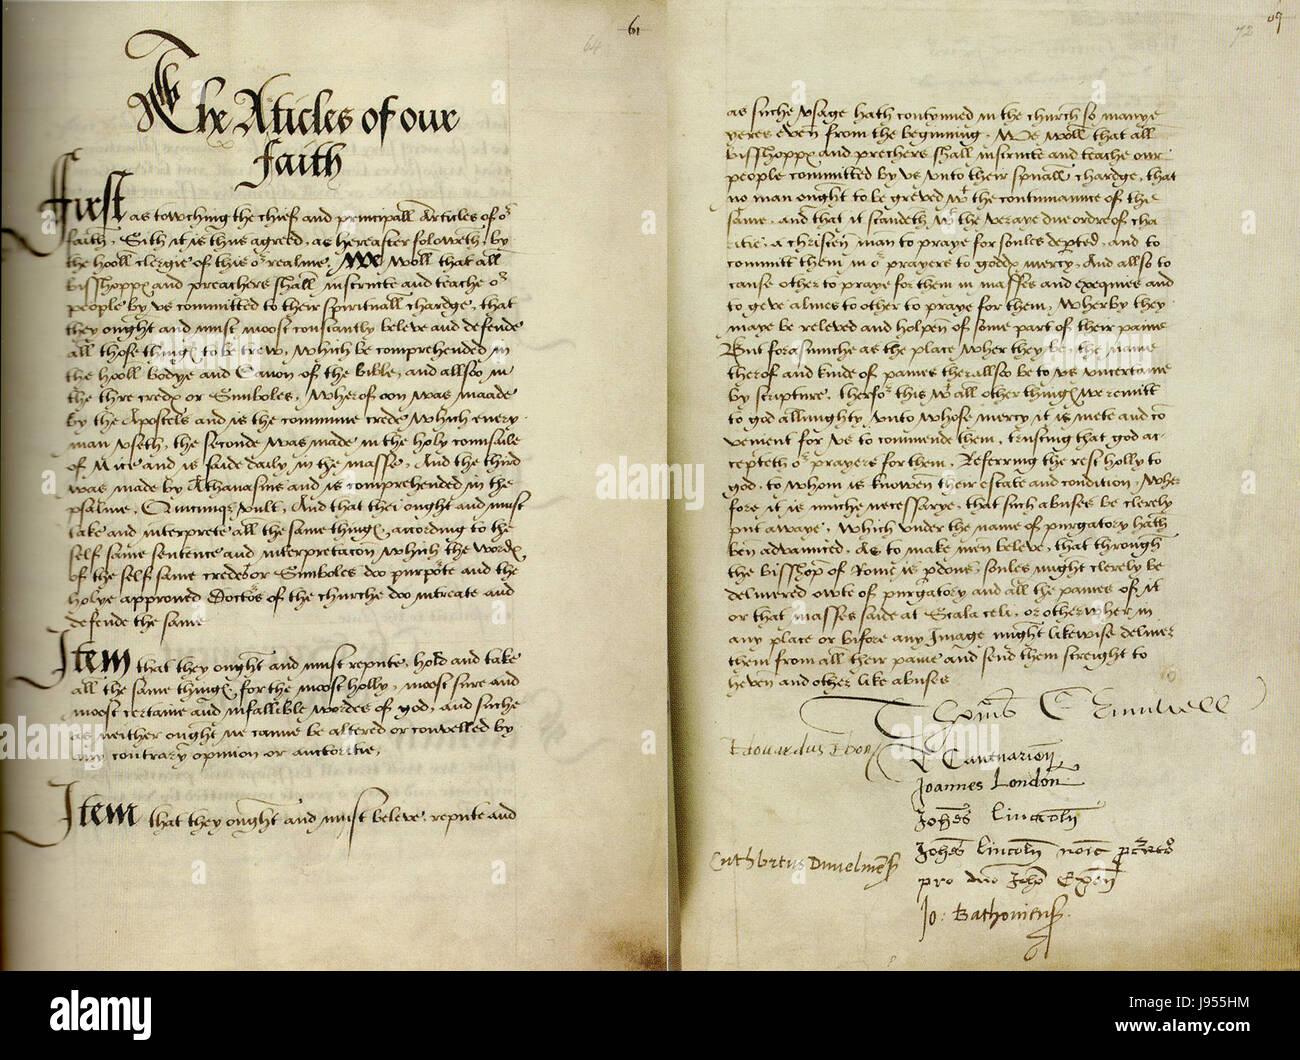 61
64
The Aticles of our
faith
First as towching the chief and principall Articles of oʳ
faith, Sith it is thus agreed, as hereafter foloweth, by
the hooll clergie of this oʳ realme, We woll that all
bisshoppꝭ and preachers shall instructe and teache oʳ
people by vs committed to their spirituall chardge, that
they ought and must moost constantly beleve and defende
all those thingꝭ to be trew, which be comprehended in
the hooll bodye and Canon of the bible, and allso in
the thre credꝭ or Simboles, wherof oon was maade
by the Apostels and is the commune crede which euery
man vseth, the seconde was made in the holy counsale
of Nice and is saide daily in the masse, And the third
was made by Athanasius and is comprehended in the
psalme, Quicunqꝫ vult, And that thei ought and must
take and interprete all the same thingꝭ, according to the
self same sentence and interpretacon which the wordꝭ
of the self same credes or Simboles doo purporte and the
holye approued Doctoʳs of the churche doo intreate and
defende the same
Item that they ought and must repute, hold and take
all the same thingꝭ for the moost holly, moost sure and
moost certaine and infallible wordes of god, and suche
as neither ought ne canne be altered or convelled by
any contrary opinion or auctoritie,
Item that they ought and must beleve, repute and
72
69
as suche vsage hath contynued in the church so manye
yeres even from the beginning, We woll that all
bisshoppꝭ and prechers shall instructe and teache our
people committed by vs vnto their spūall chardge, that
no man ought to be greved wᵗ the contynuaunce of the
same, and that it standeth wᵗ the veraye due ordre of cha
ritie, a christen man to praye for soules depted, and to
committ them in oʳ prayers to goddꝭ mercy, And allso to
cause other to praye for them in masses and exequies and
to geve almes to other to praye for them, wherby they
maye be releved and holpen of some part of their paine
But forasmuche as the place wher they be, the name
therof and kinde of paines ther allso be to vs vncertaine
by scripture, therfoʳ this wᵗ all other thingꝭ we remitt
to god allmighty vnto whose mercy it is mete and cō
venient for vs to commende them, trusting that god ac-
cepteth oʳ prayers for them, Referring the rest holly to
god, to whom is knowen their estate and condition, Wher
fore it is muche necessarye, that such abuses be clerely
put awaye, which vnder the name of purgatory hath
ben advaunced, As to make men beleve, that through
the bisshop of Rome is pdons, soules might clerely be
delivered owte of purgatory and all the paines of it
or that masses saide at Scala celi, or otherwher in
any place or bifore any Image might likewise deliver
them from all their paine and send them streight to
heven and other like abuses
Thomas Crumwell
Edouardus Ebor
T Cantuarien
Joannes London
Johēs Lincoln
Johēs Lincoln noie pcuratoʳ
pro dno Johē Exon
Cuthbertus Dunelmens
Jo: Bathoniens
alamy
alamy
Image ID: J955HM
www.alamy.com